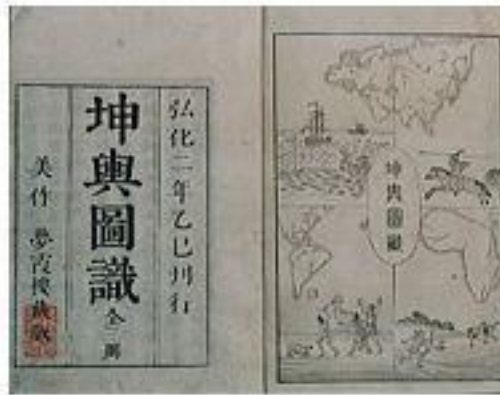 弘化二年乙巳刊行
坤輿圖識 全三冊
美作 夢霞楼藏版
坤輿圖識